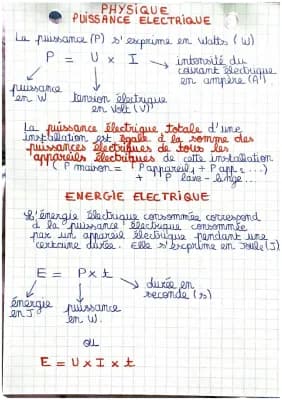 PHYSIQUE
PUISSANCE ELECTRIQUE
La puissance (P) s'exprime en Watts (W)
P = U x I
intensité du
courant électrique
en ampère (A)
puissance
en W
tension électrique
en Volt (V)
La puissance électrique totale d'une
installation est égale à la somme des
puissances électriques de tous les
appareils électriques de cette installation
( P maison = P appareil 1 + P app 2 ...)
+ P lave-linge ...
ENERGIE ELECTRIQUE
L'énergie électrique consommée correspond
à la puissance électrique consommée
par un appareil électrique pendant une
certaine durée. Elle s'exprime en Joule (J)
E = P x t
durée en
seconde (s)
énergie
en J
puissance
en W.
ou
E = U x I x t